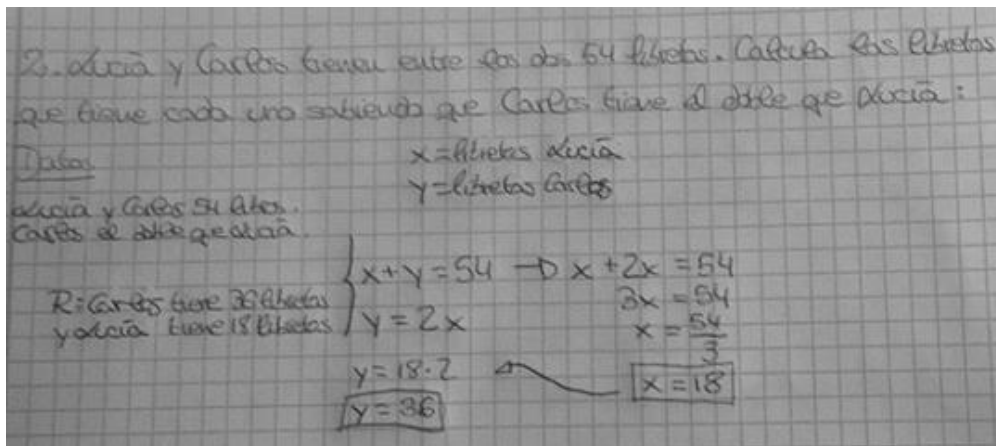 2. Lucía y Carlos tienen entre los dos 54 libretas. Calcula las libretas
que tiene cada uno sabiendo que Carlos tiene el doble qe Lucía:
Datos
x = libretas Lucía
y = libretas Carlos
Lucía y Carlos 54 libros.
Carlos el doble qe Lucía.
x + y = 54 → x + 2x = 54
3x = 54
R: Carlos tiene 36 libretas
y Lucía tiene 18 libretas
y = 2x
x = 54/3
y = 18·2
x = 18
y = 36